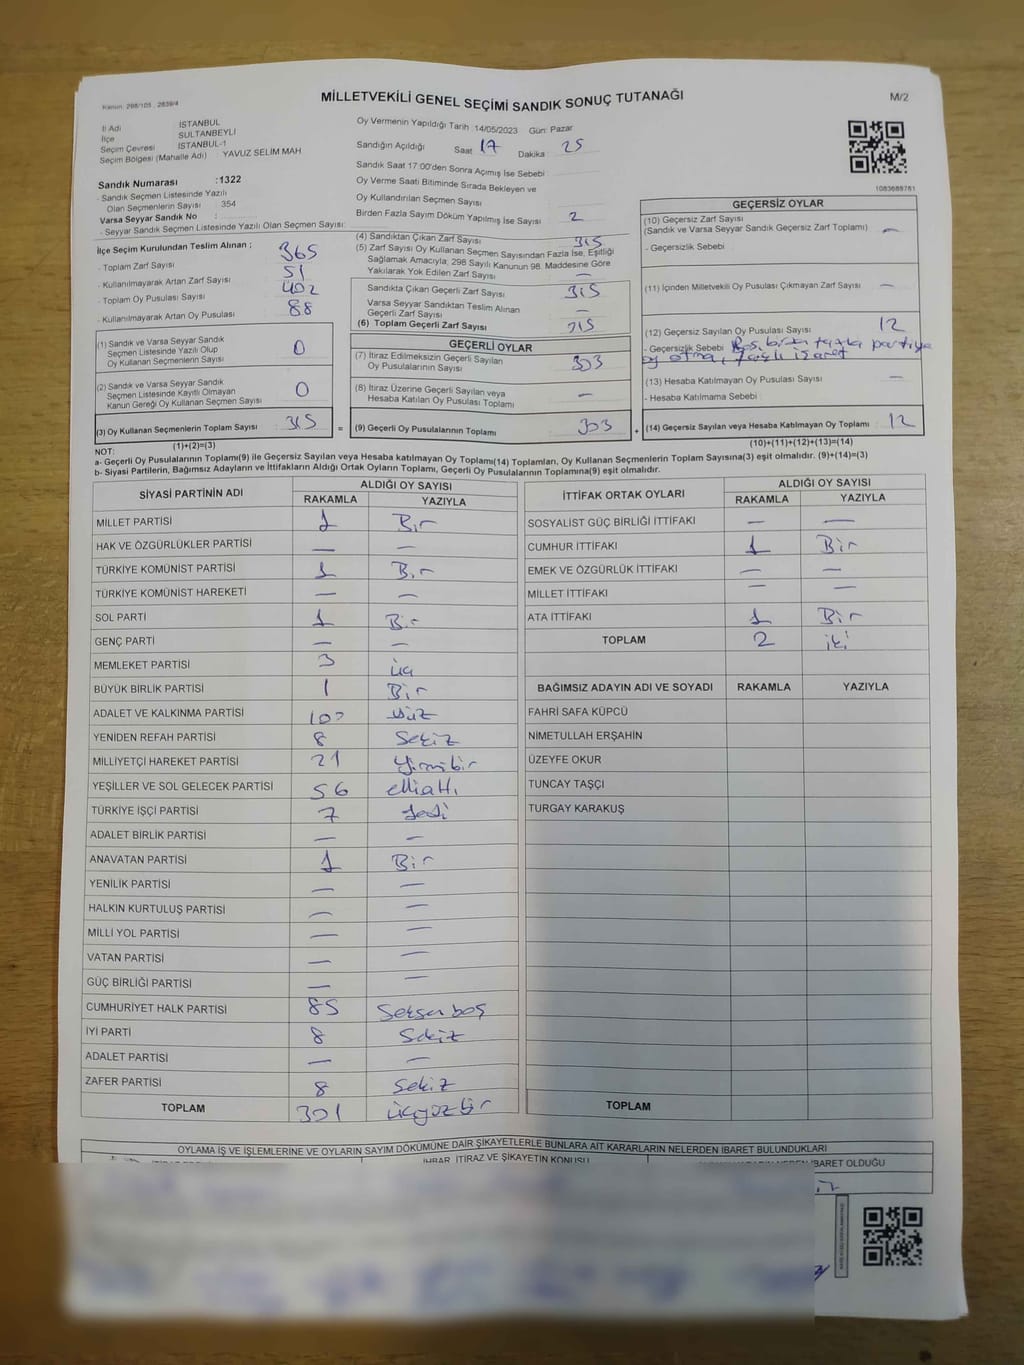 Kanun: 298/105 , 2839/4
MİLLETVEKİLİ GENEL SEÇİMİ SANDIK SONUÇ TUTANAĞI
M/2
İl Adı İSTANBUL
İlçe SULTANBEYLİ
Seçim Çevresi İSTANBUL-1
Seçim Bölgesi (Mahalle Adı) : YAVUZ SELİM MAH.
Sandık Numarası :1322
- Sandık Seçmen Listesinde Yazılı
Olan Seçmenlerin Sayısı : 354
Varsa Seyyar Sandık No :
- Seyyar Sandık Seçmen Listesinde Yazılı Olan Seçmen Sayısı:
Oy Vermenin Yapıldığı Tarih 14/05/2023 Gün: Pazar
Sandığın Açıldığı Saat 17 Dakika : 25
Sandık Saat 17:00'den Sonra Açılmış İse Sebebi :
Oy Verme Saati Bitiminde Sırada Bekleyen ve
Oy Kullandırılan Seçmen Sayısı
Birden Fazla Sayım Döküm Yapılmış İse Sayısı 2
1083688761
İlçe Seçim Kurulundan Teslim Alınan :
- Toplam Zarf Sayısı 365
- Kullanılmayarak Artan Zarf Sayısı 51
- Toplam Oy Pusulası Sayısı 402
- Kullanılmayarak Artan Oy Pusulası 88
(1) Sandık ve Varsa Seyyar Sandık
Seçmen Listesinde Yazılı Olup
Oy Kullanan Seçmenlerin Sayısı 0
(2) Sandık ve Varsa Seyyar Sandık
Seçmen Listesinde Kayıtlı Olmayan
Kanun Gereği Oy Kullanan Seçmen Sayısı 0
(3) Oy Kullanan Seçmenlerin Toplam Sayısı 315 =
(1)+(2)=(3)
(4) Sandıktan Çıkan Zarf Sayısı 315
(5) Zarf Sayısı Oy Kullanan Seçmen Sayısından Fazla İse, Eşitliği
Sağlamak Amacıyla; 298 Sayılı Kanunun 98. Maddesine Göre
Yakılarak Yok Edilen Zarf Sayısı —
Sandıkta Çıkan Geçerli Zarf Sayısı 315
Varsa Seyyar Sandıktan Teslim Alınan
Geçerli Zarf Sayısı —
(6) Toplam Geçerli Zarf Sayısı 315
GEÇERLİ OYLAR
(7) İtiraz Edilmeksizin Geçerli Sayılan
Oy Pusulalarının Sayısı: 303
(8) İtiraz Üzerine Geçerli Sayılan veya
Hesaba Katılan Oy Pusulası Toplamı —
(9) Geçerli Oy Pusulalarının Toplamı 303 +
GEÇERSİZ OYLAR
(10) Geçersiz Zarf Sayısı
(Sandık ve Varsa Seyyar Sandık Geçersiz Zarf Toplamı) —
- Geçersizlik Sebebi
(11) İçinden Milletvekili Oy Pusulası Çıkmayan Zarf Sayısı —
(12) Geçersiz Sayılan Oy Pusulası Sayısı 12
- Geçersizlik Sebebi Boş, birden fazla partiye
oy atma, işaret
(13) Hesaba Katılmayan Oy Pusulası Sayısı —
- Hesaba Katılmama Sebebi
(14) Geçersiz Sayılan veya Hesaba Katılmayan Oy Toplamı : 12
(10)+(11)+(12)+(13)=(14)
NOT:
a- Geçerli Oy Pusulalarının Toplamı(9) ile Geçersiz Sayılan veya Hesaba katılmayan Oy Toplamı(14) Toplamları, Oy Kullanan Seçmenlerin Toplam Sayısına(3) eşit olmalıdır. (9)+(14)=(3)
b- Siyasi Partilerin, Bağımsız Adayların ve İttifakların Aldığı Ortak Oyların Toplamı, Geçerli Oy Pusulalarının Toplamına(9) eşit olmalıdır.
SİYASİ PARTİNİN ADI ALDIĞI OY SAYISI
RAKAMLA YAZIYLA
MİLLET PARTİSİ 1 Bir
HAK VE ÖZGÜRLÜKLER PARTİSİ — —
TÜRKİYE KOMÜNİST PARTİSİ 1 Bir
TÜRKİYE KOMÜNİST HAREKETİ — —
SOL PARTİ 1 Bir
GENÇ PARTİ — —
MEMLEKET PARTİSİ 3 üç
BÜYÜK BİRLİK PARTİSİ 1 Bir
ADALET VE KALKINMA PARTİSİ yüz
YENİDEN REFAH PARTİSİ 8 Sekiz
MİLLİYETÇİ HAREKET PARTİSİ 21 Yirmibir
YEŞİLLER VE SOL GELECEK PARTİSİ 56 elliAltı
TÜRKİYE İŞÇİ PARTİSİ 7 Yedi
ADALET BİRLİK PARTİSİ — —
ANAVATAN PARTİSİ 1 Bir
YENİLİK PARTİSİ — —
HALKIN KURTULUŞ PARTİSİ — —
MİLLİ YOL PARTİSİ — —
VATAN PARTİSİ — —
GÜÇ BİRLİĞİ PARTİSİ — —
CUMHURİYET HALK PARTİSİ 85 Seksenbeş
İYİ PARTİ 8 Sekiz
ADALET PARTİSİ — —
ZAFER PARTİSİ 8 Sekiz
TOPLAM 301 üçyüzbir
İTTİFAK ORTAK OYLARI ALDIĞI OY SAYISI
RAKAMLA YAZIYLA
SOSYALİST GÜÇ BİRLİĞİ İTTİFAKI — —
CUMHUR İTTİFAKI 1 Bir
EMEK VE ÖZGÜRLÜK İTTİFAKI — —
MİLLET İTTİFAKI — —
ATA İTTİFAKI 1 Bir
TOPLAM 2 iki
BAĞIMSIZ ADAYIN ADI VE SOYADI RAKAMLA YAZIYLA
FAHRİ SAFA KÜPCÜ
NİMETULLAH ERŞAHİN
ÜZEYFE OKUR
TUNCAY TAŞÇI
TURGAY KARAKUŞ
TOPLAM
OYLAMA İŞ VE İŞLEMLERİNE VE OYLARIN SAYIM DÖKÜMÜNE DAİR ŞİKAYETLERLE BUNLARA AİT KARARLARIN NELERDEN İBARET BULUNDUKLARI
İHBAR, İTİRAZ VE ŞİKAYETİN KONUSU
İBARET OLDUĞU